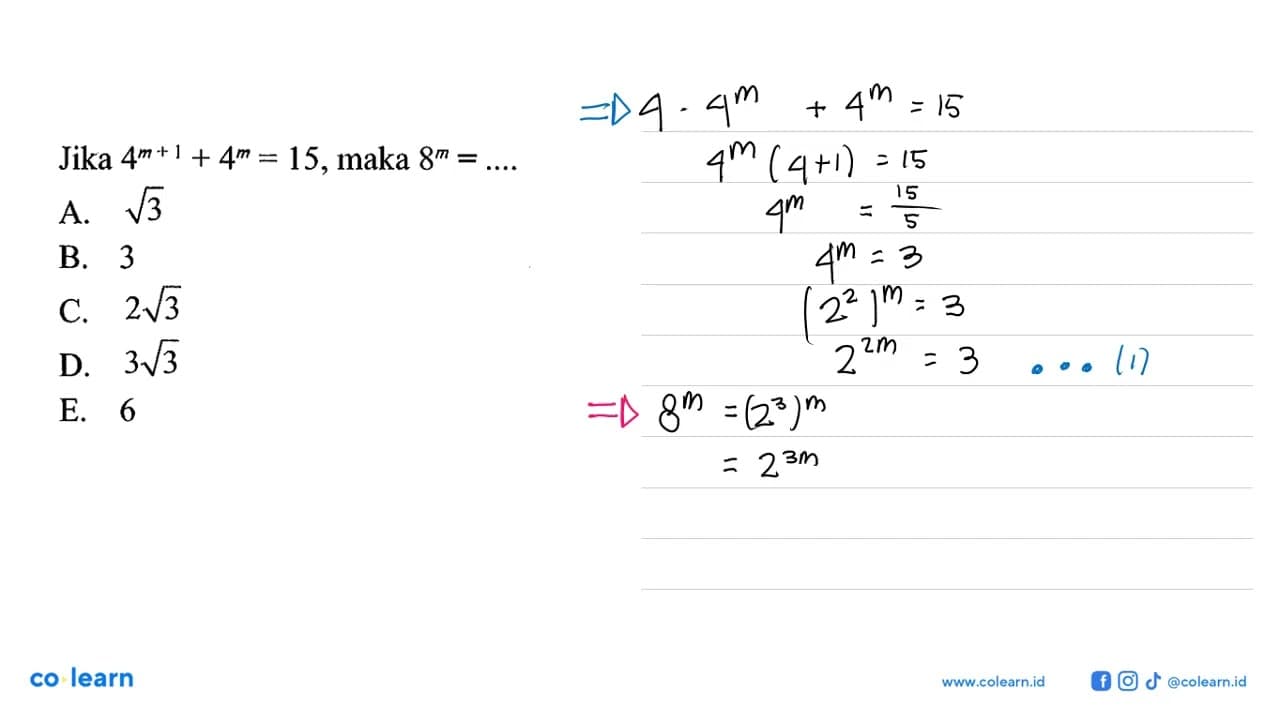 Jika 4^{m+1} + 4^m = 15, maka 8^m = ....
A. √3
B. 3
C. 2√3
D. 3√3
E. 6
⇒ 4 · 4^m + 4^m = 15
4^m (4+1) = 15
4^m = 15/5
4^m = 3
(2^2)^m = 3
2^{2m} = 3 ... (1)
⇒ 8^m = (2^3)^m
= 2^{3m}
co learn
www.colearn.id
@colearn.id